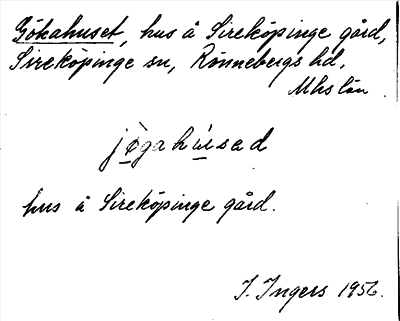 Gökahuset, hus å Sireköpinge gård,
Sireköpinge sn, Rönnebergs hd,
Mhs län
jø̀gahúsad
hus å Sireköpinge gård.
I. Ingers 1956.